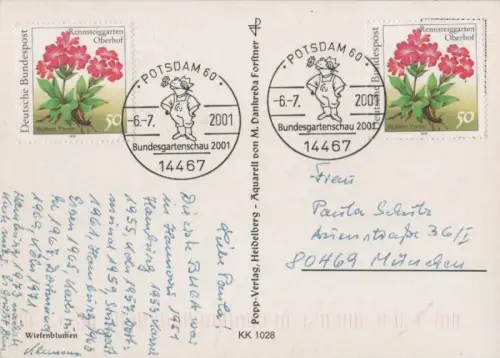 Deutsche Bundespost
Rennsteiggarten
Oberhof
50
POTSDAM 60
-6.-7. 2001
Bundesgartenschau 2001
14467
POTSDAM 60
-6.-7. 2001
Bundesgartenschau 2001
14467
Rennsteiggarten
Oberhof
Deutsche Bundespost
50
Die 1. BUGA war
in Hannover 1951
Hamburg 1953, Kassel
1955, Köln 1957, Dort-
mund 1959, Stuttgart
1961, Hamburg 1963
Essen 1965, Karls-
ruhe 1967, Dortmund
1969, Köln 1971
Hamburg 1973
Wiesenblumen
Popp-Verlag, Heidelberg - Aquarell von M. Dankreda Forstner
KK 1028
Frau
Paula Schulz
36/I
80469 München